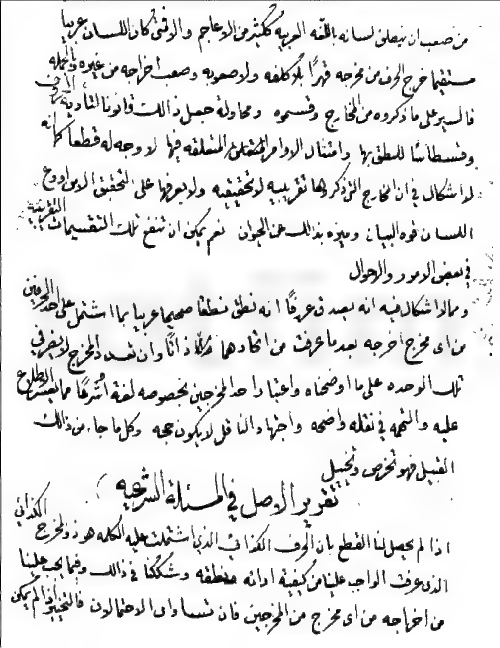 من صعب ان ينطلق لسانه باللغه العربيه ككثير من الاعاجم والافتى كان اللسان عربيا
مستقيما خرج الحرف من مخرجه قهرًا بلا كلفه ولا صعوبه وصعب اخراجه من غيره والحمله
فالسير على ما ذكروه من المخارج وقسموه ومحاولة جعل ذالك قانونا لتادية الحرف
وقسطاسًا للنطق بها وامتثال الاوامر المتعلقه فيها لا وجه له قطعًا كما انه
لا اشكال في ان المخارج التي ذكروها تقريبيه لا تحقيقيه ولا يعرفها على التحقيق الا من اودع
اللسان قوه البيان وميزه بذالك عن الحيوان نعم يمكن ان تنفع تلك التقسيمات التقريبية
في بعض الامور والاحوال
ومما لا اشكال فيه انه يصدق عرفًا انه نطق نطقا صحيحا عربيا بما اشتمل على احد الحرفين
من اى مخرج اخرجه بعد ما عرفت من اتحادهما ذاتًا وان تعدد المخرج لا يضر في
تلك الوحده على ما اوضحناه واعتبار احد المخرجين بخصوصه لغة او شرعًا مما يتعسر الاطلاع
عليه والتهمه في نقله واضحه واجتهاد الناقل لا يكون حجه وكل ما جاء من ذالك
القبيل فهو تخرص وتخييل
تقرير الاصل في المسئلة الشرعيه
اذا لم يحصل لنا القطع بان الحرف الكذائي الذي اشتملت عليه الكلمه هو ذو المخرج الكذائي
الذى عرفت الواجب علينا من كيفية ادائه ونطقه وشككنا في ذالك وفيما يجب علينا
من اخراجه من اى مخرج من المخرجين فان تساوى الاحتمالان فالتخيير ان لم يمكن